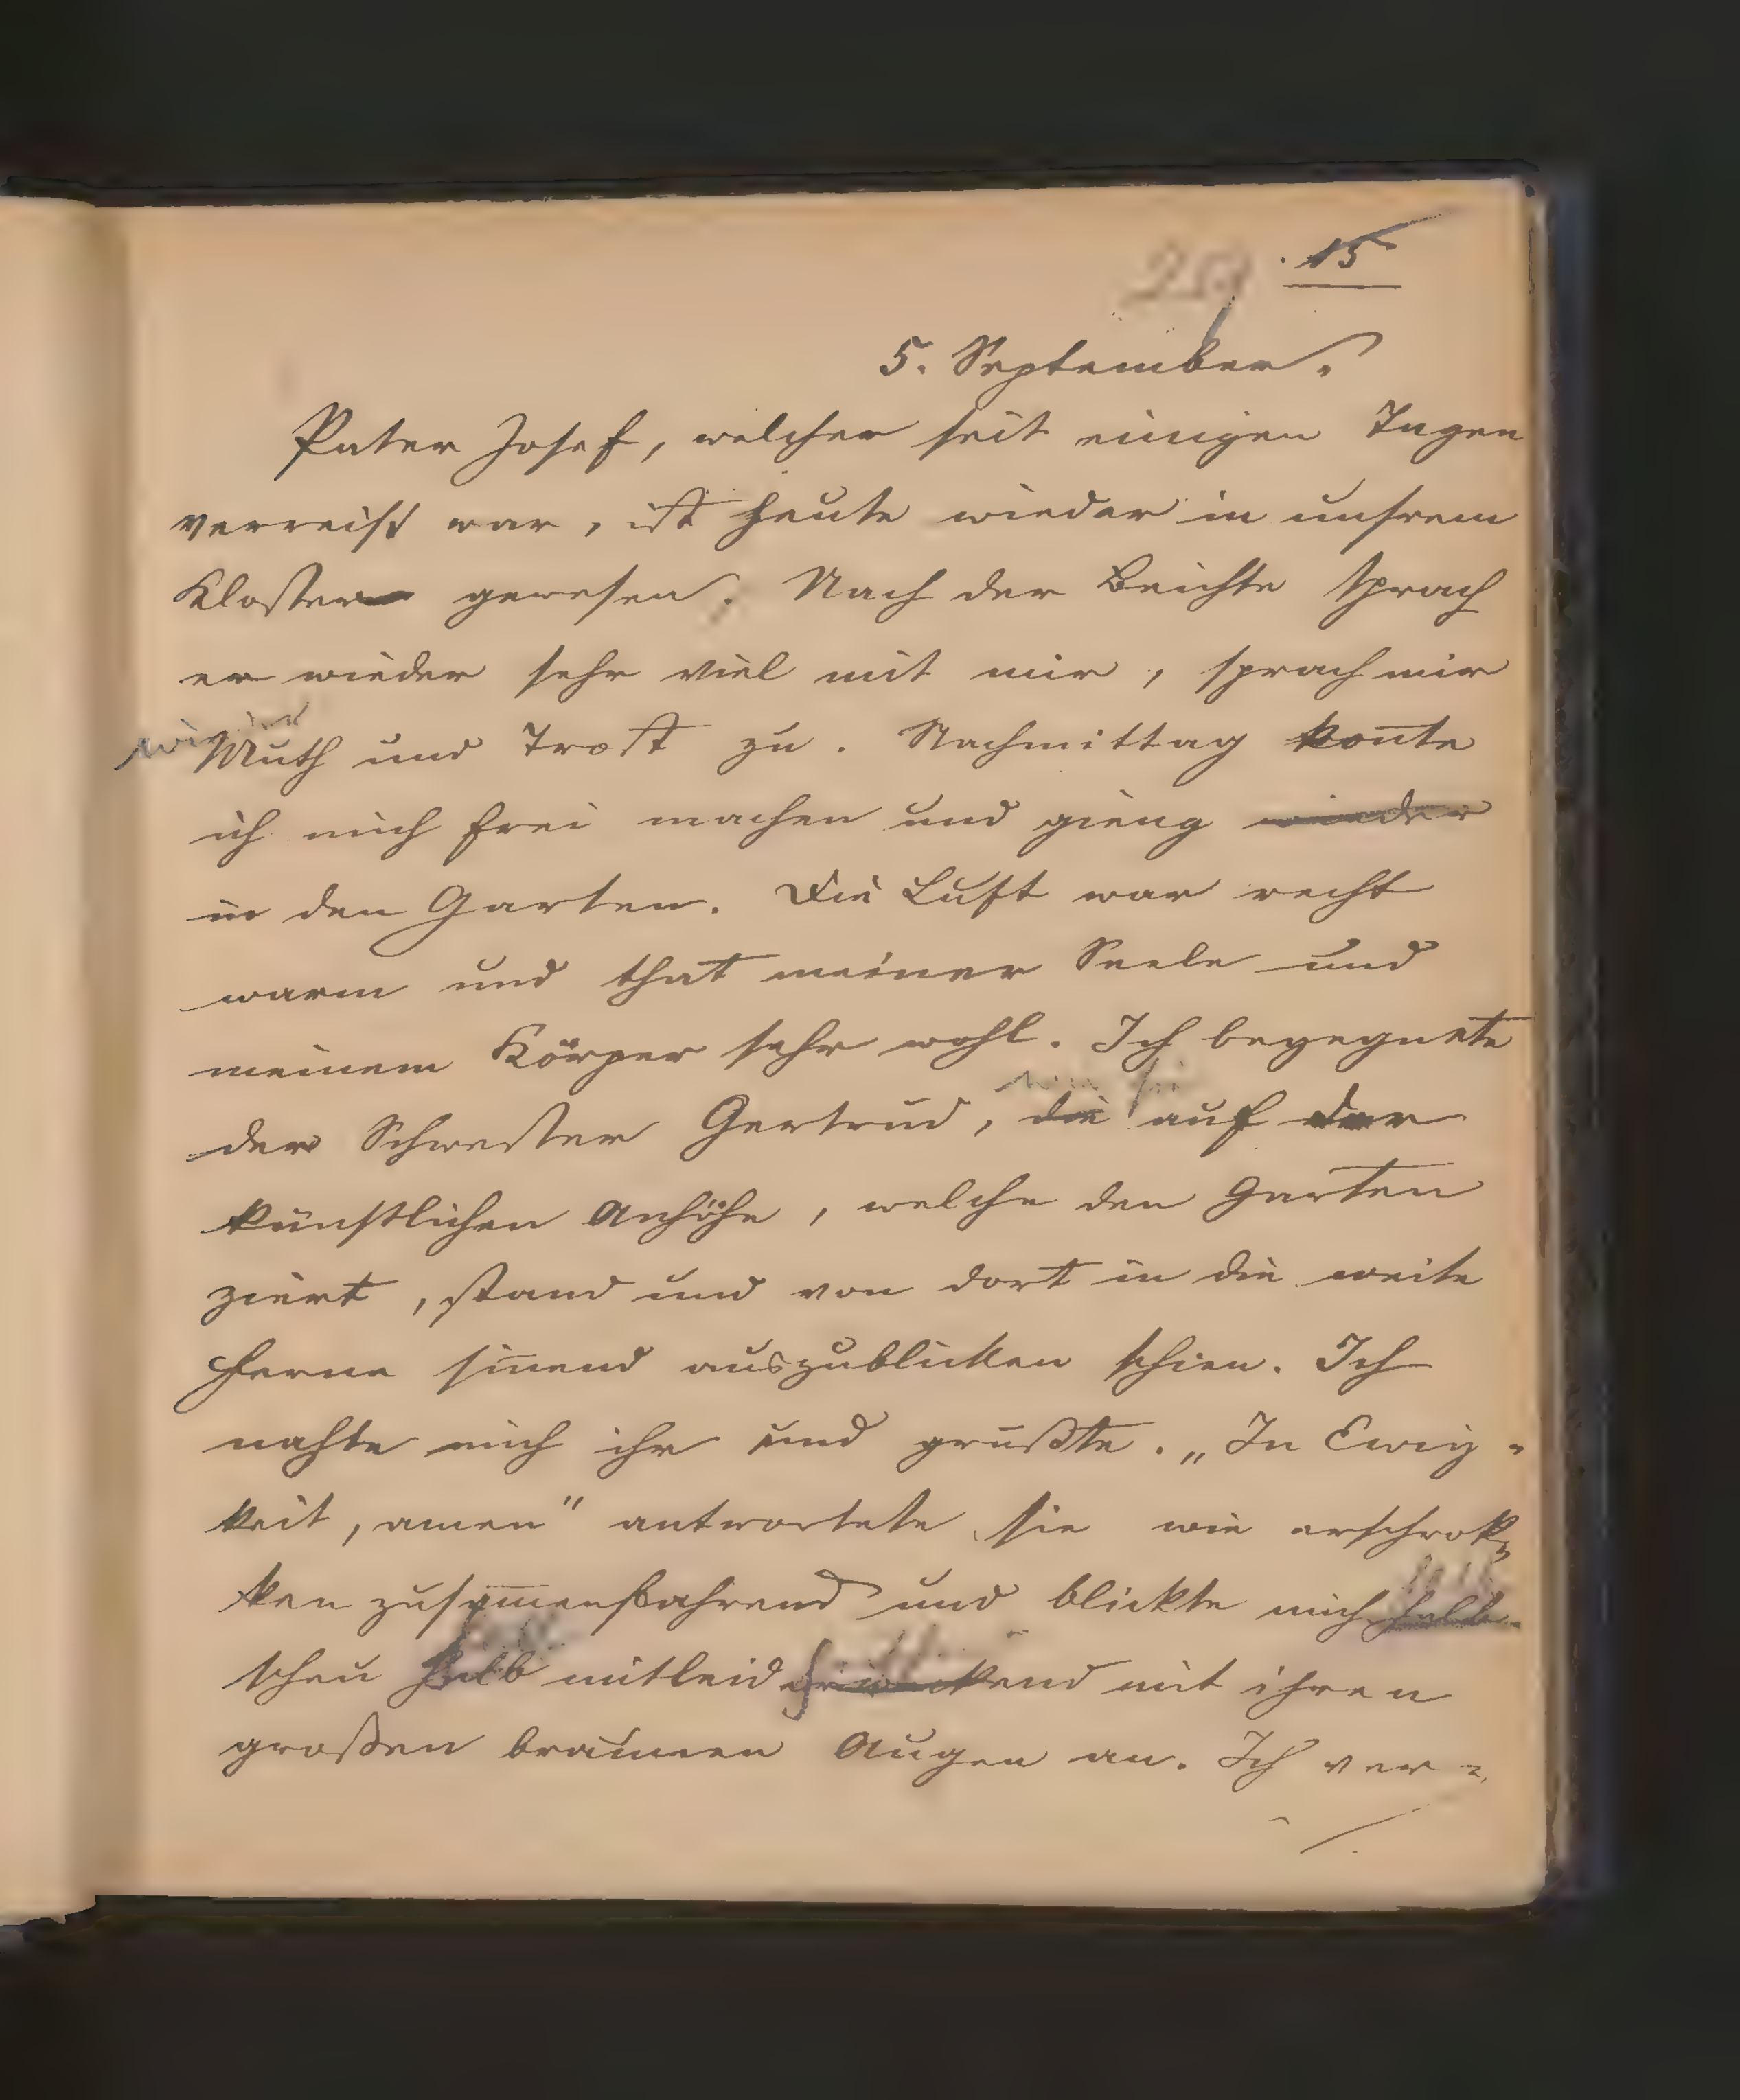 15
5. September.
Pater Josef, welcher seit einigen Tagen
verreist war, ist heute wieder in unsrem
Kloster gewesen. Nach der Beichte sprach
er wieder sehr viel mit mir, sprach mir
Muth und Trost zu. Nachmittag kon̄te
ich mich frei machen und gieng wieder
in den Garten. Die Luft war recht
warm und that meiner Seele und
meinem Körper sehr wohl. Ich begegnete
der Schwester Gertrud, die auf der
künstlichen Anhöhe, welche den Garten
ziert, stand und von dort in die weite
Ferne sin̄end auszublicken schien. Ich
nahte mich ihr und grüßte. „In Ewig-
keit, amen" antwortete sie wie erschrok-
ken zusam̄enfahrend und blickte mich halb
scheu halb mitleiderweckend mit ihren
großen braunen Augen an. Ich ver-